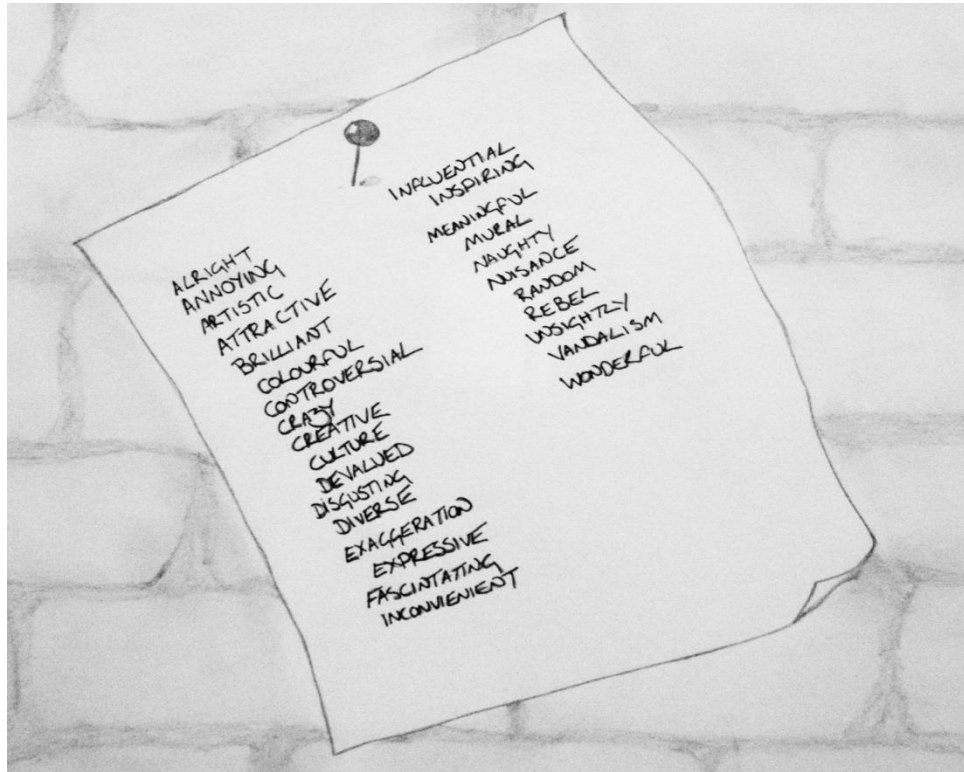 ALRIGHT
ANNOYING
ARTISTIC
ATTRACTIVE
BRILLIANT
COLOURFUL
CONTROVERSIAL
CRAZY
CREATIVE
CULTURE
DEVALUED
DISGUSTING
DIVERSE
EXAGGERATION
EXPRESSIVE
FASCINTATING
INCONVIENIENT
INFLUENTIAL
INSPIRING
MEANINGFUL
MURAL
NAUGHTY
NUISANCE
RANDOM
REBEL
UNSIGHTLY
VANDALISM
WONDERFUL